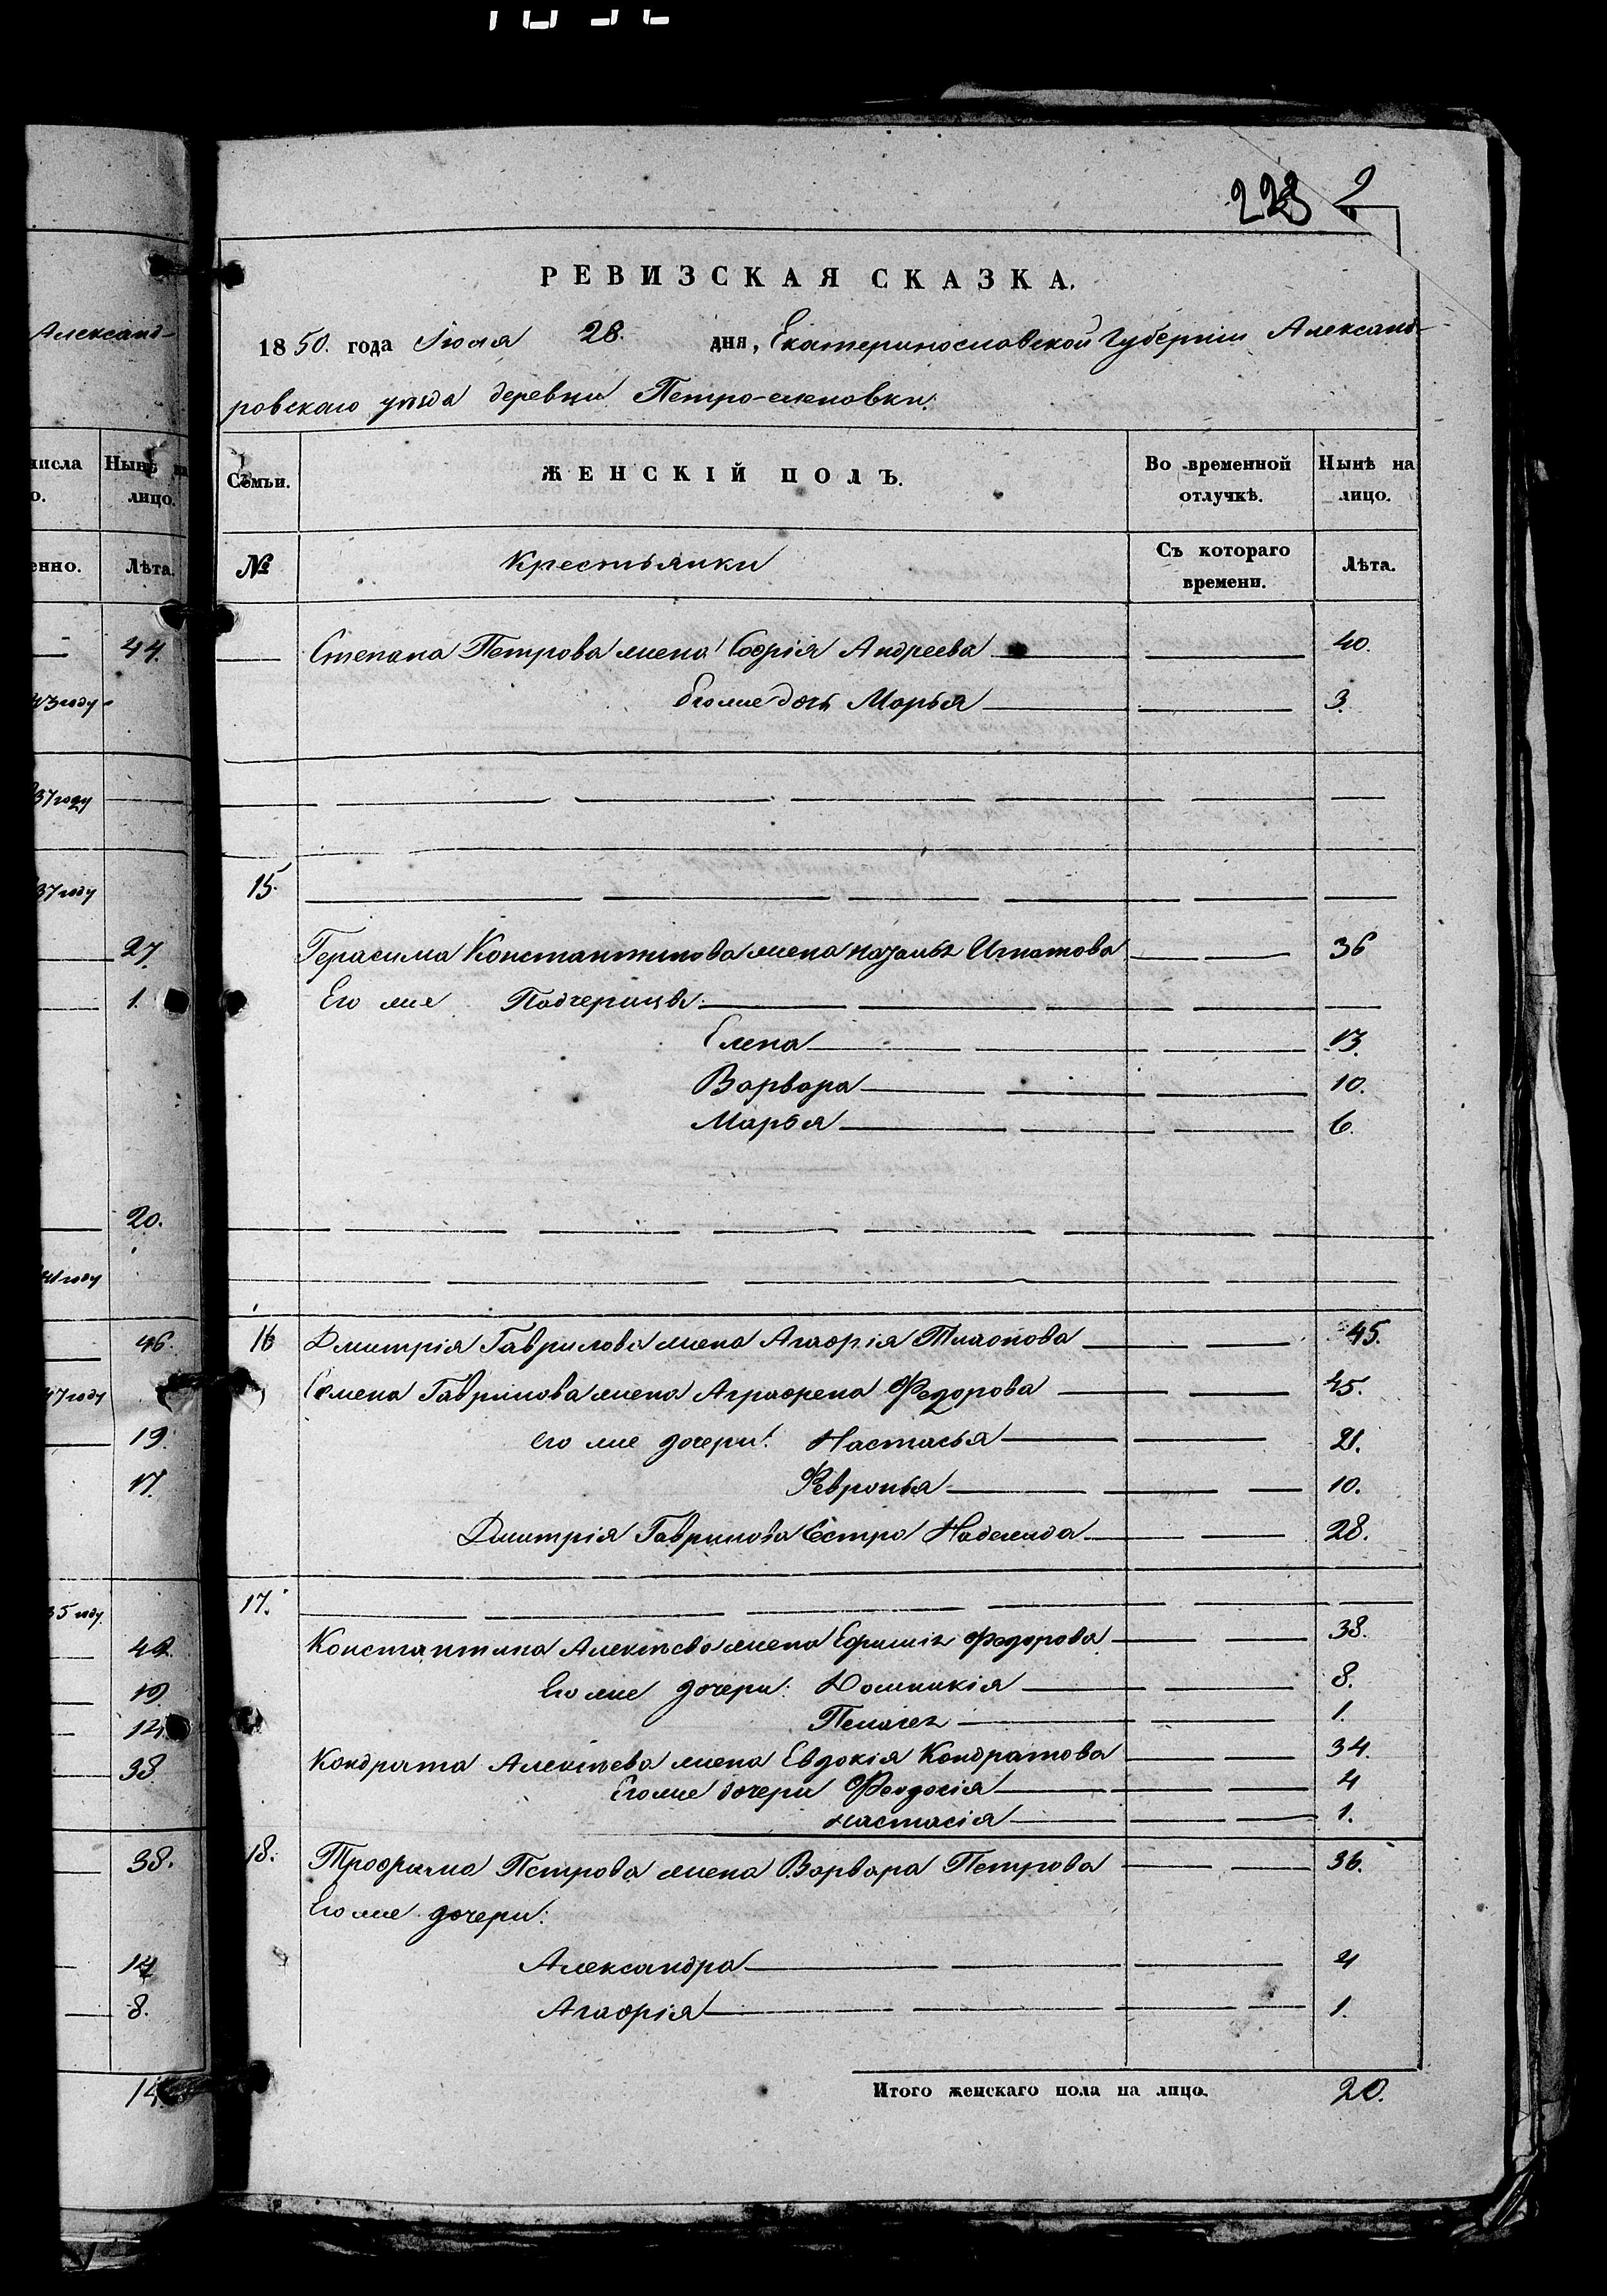 228
РЕВИЗСКАЯ СКАЗКА.
1850. года Іюля 28. дня, Екатеринославской Губерніи Александ-
ровскаго уѣзда деревни Петро-
Семьи.
ЖЕНСКІЙ ПОЛЪ.
Во временной отлучкѣ.
Нынѣ на лицо.
№
Крестьянки
Съ котораго времени.
Лѣта.
Степана Петрова жена Софія Андреева 40.
Его же дочь Марья 3.
15.
Герасима Константинова жена Игнатова 36
Его же Падчерицы:
Елена 13.
Варвара 10.
Марья 6.
16 Дмитрія Гаврилова жена Агафія 45.
Семена Гаврилова жена Аграфена Федорова 45.
его же дочери: Настасья 21.
Февронья 10.
Дмитрія Гаврилова Сестра Надежда 28.
17.
Константина Алексѣева жена Федорова 38.
Его же дочери: Домникія 8.
Пелагея 1.
Кондрата Алексѣева жена Евдокія Кондратова 34.
Его же дочери Феодосія 4
Настасія 1.
18. Трофима Петрова жена Варвара Петрова 36.
Его же дочери:
Александра 4
Агафія 1.
Итого женскаго пола на лицо. 20.
Александ-
числа
Нынѣ на
о.
лицо.
енно.
Лѣта.
44.
43 году
37 году
37 году
27.
1.
20.
41 году
46.
47 году
19.
17.
35 году.
42.
19.
14.
38.
38.
14
8.
14